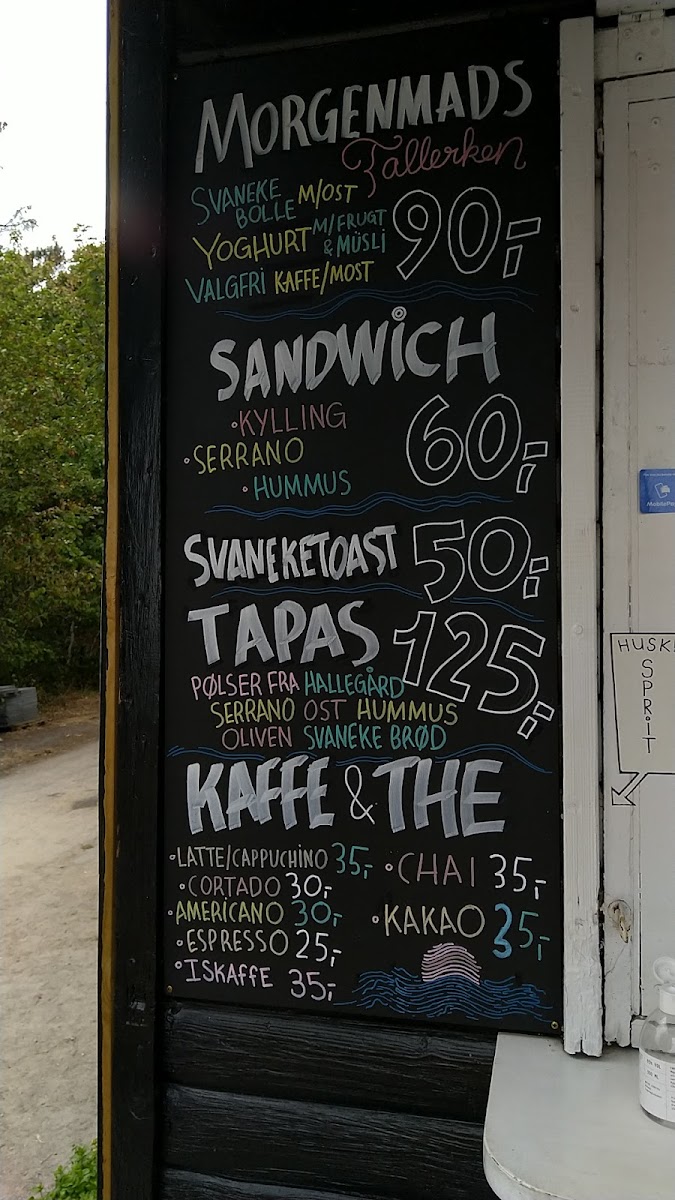 MORGENMADS
Tallerken
SVANEKE BOLLE M/OST
YOGHURT M/FRUGT & MÜSLI
VALGFRI KAFFE/MOST
90,-
SANDWICH
• KYLLING
• SERRANO
• HUMMUS
60,-
SVANEKETOAST 50,-
TAPAS 125,-
PØLSER FRA HALLEGÅRD
SERRANO OST HUMMUS
OLIVEN SVANEKE BRØD
KAFFE & THE
• LATTE/CAPPUCHINO 35,-
• CORTADO 30,-
• AMERICANO 30,-
• ESPRESSO 25,-
• ISKAFFE 35,-
• CHAI 35,-
• KAKAO 35,-
HUSK!
SPRIT
MobilePay